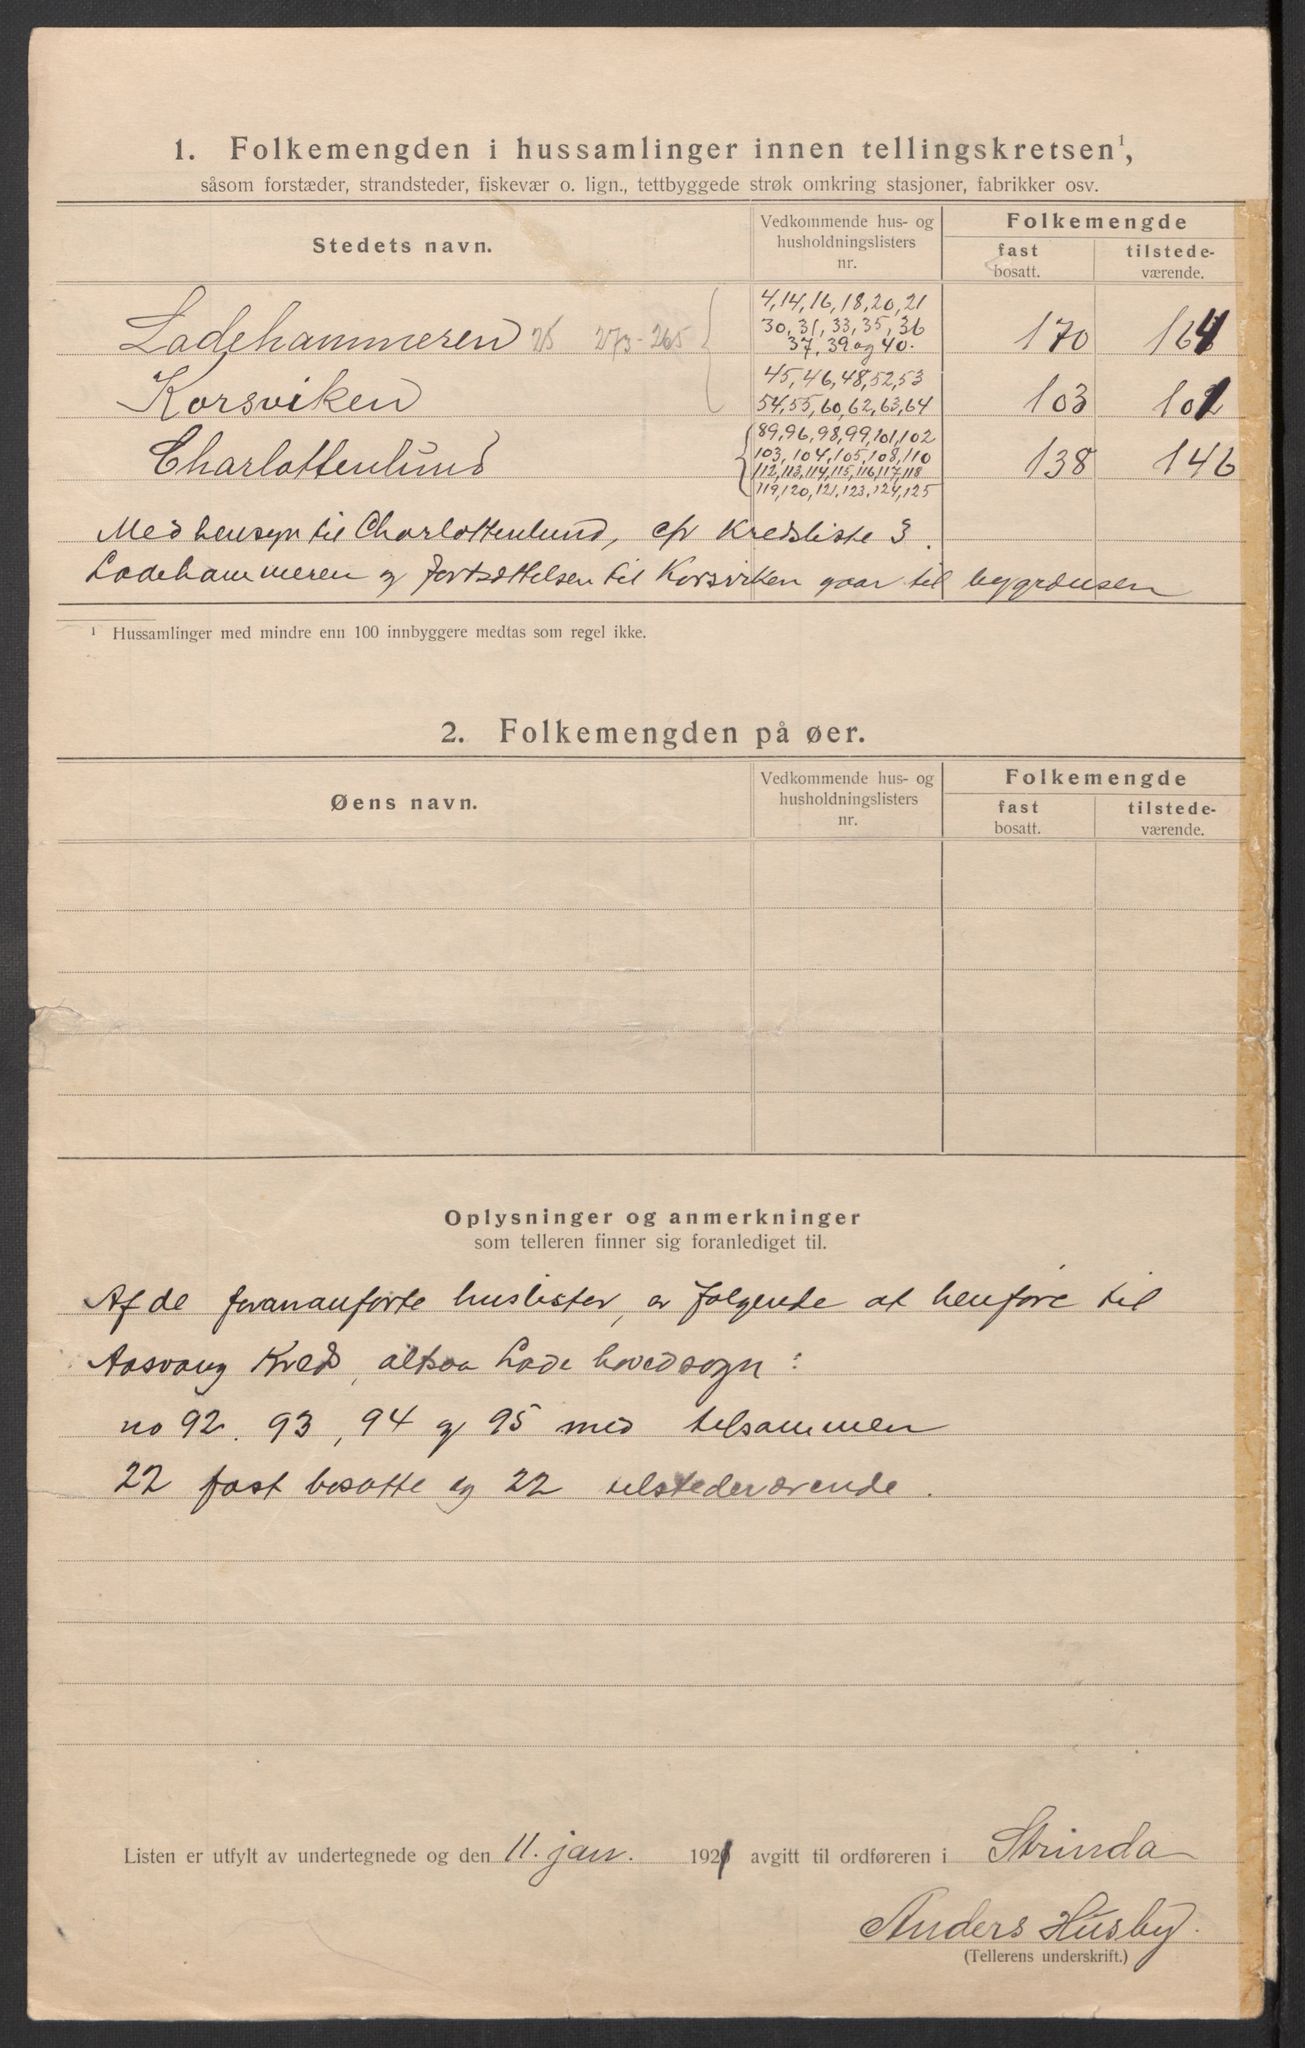 1. Folkemengden i hussamlinger innen tellingskretsen¹,
såsom forstæder, strandsteder, fiskevær o. lign., tettbyggede strøk omkring stasjoner, fabrikker osv.
Stedets navn.
Vedkommende hus- og husholdningslisters nr.
Folkemengde
fast bosatt.
tilstede-værende.
4, 14, 16, 18, 20, 21
Ladehammeren 25 273-265 30, 31, 33, 35, 36 170 164
37, 39 og 40.
45, 46, 48, 52, 53
Korsviken 54, 55, 60, 62, 63, 64 103 101
89, 96, 98, 99, 101, 102
Charlottenlund 103, 104, 105, 108, 110 138 146
112, 113, 114, 115, 116, 117, 118
119, 120, 121, 123, 124, 125
Med hensyn til Charlottenlund, cfr Kredsliste 3.
Ladehammeren og fortsættelsen til Korsviken gaar til bygrænsen
¹ Hussamlinger med mindre enn 100 innbyggere medtas som regel ikke.
2. Folkemengden på øer.
Øens navn.
Vedkommende hus- og husholdningslisters nr.
Folkemengde
fast bosatt.
tilstede-værende.
Oplysninger og anmerkninger
som telleren finner sig foranlediget til.
Af de forananførte huslister, er følgende at henføre til
Aasvang Kreds, altsaa Lade hovedsogn:
no 92, 93, 94 og 95 med tilsammen
22 fast bosatte og 22 tilstedeværende.
Listen er utfylt av undertegnede og den 11. jan. 1921 avgitt til ordføreren i Strinda
Anders Husby.
(Tellerens underskrift.)